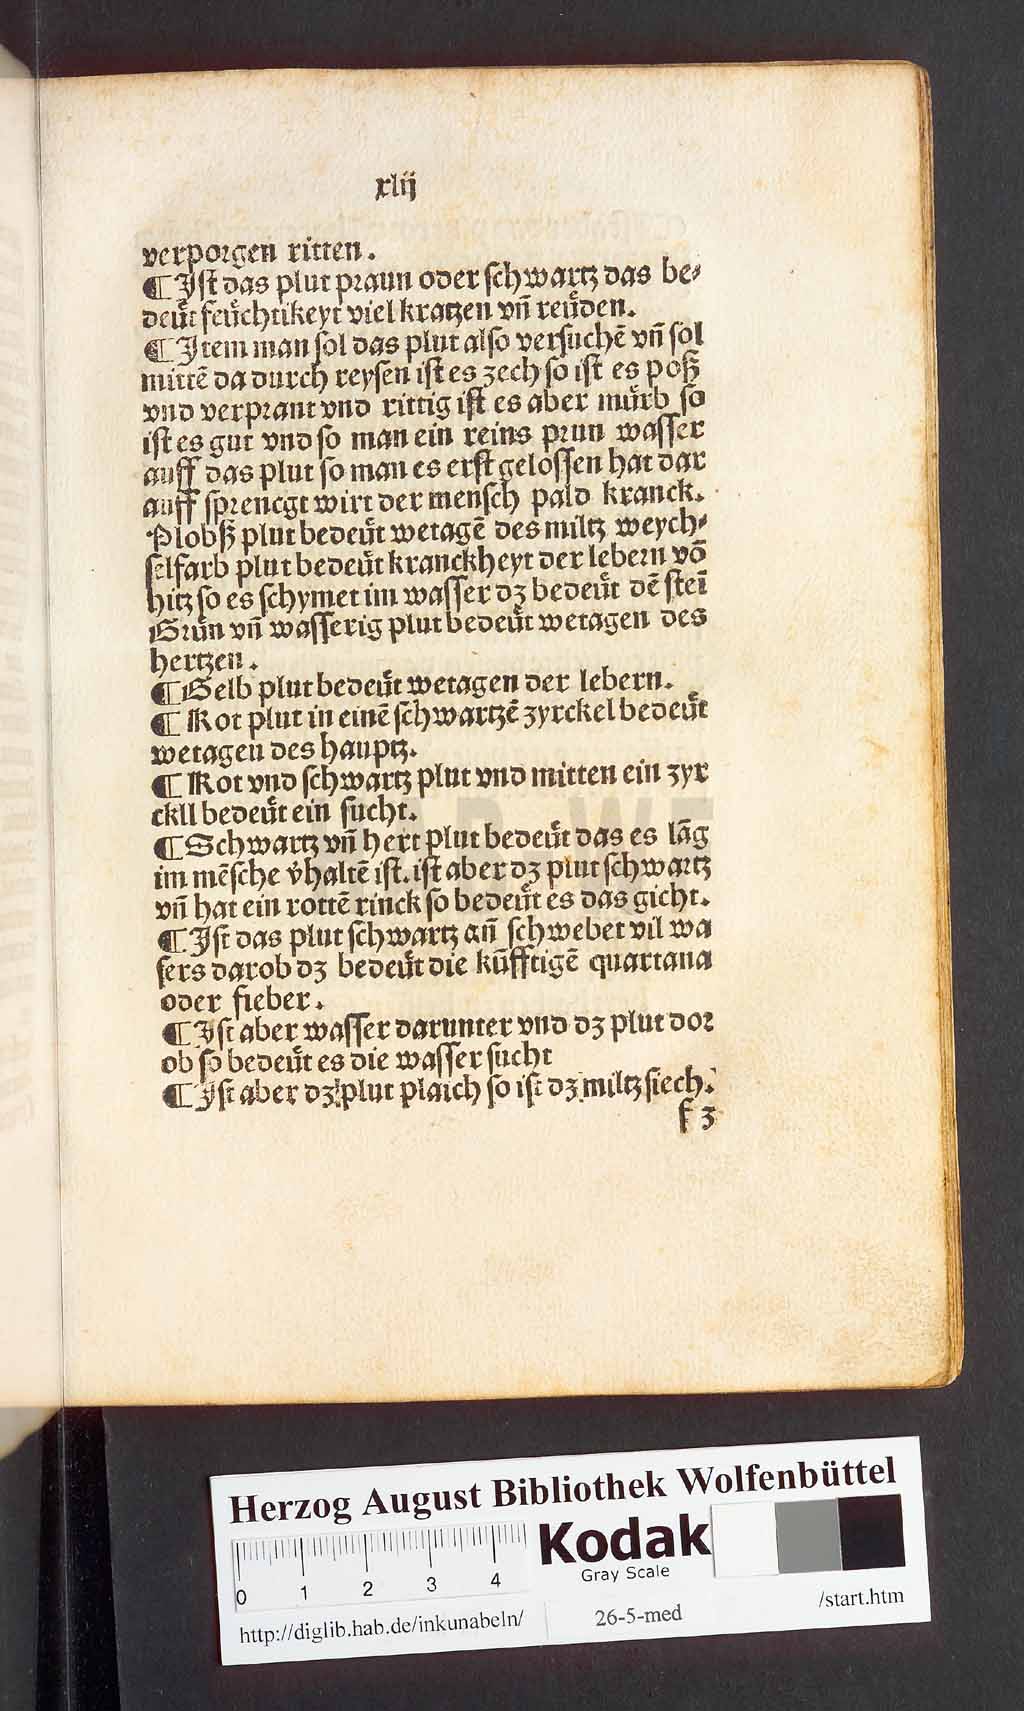 xlij
verporgen ritten.
¶ Jſt das plut praun oder ſchwartz das be⸗
deuͤt feuͤchtikeyt viel kratzen vñ reuͤden.
¶ Jtem man ſol das plut alſo verſuchē vñ ſol
mittē da durch reyſen iſt es zech ſo iſt es poß
vnd verprant vnd rittig iſt es aber muͤrb ſo
iſt es gut vnd ſo man ein reins prun waſſer
auff das plut ſo man es erſt geloſſen hat dar
auff ſprencgt wirt der menſch pald kranck.
Plobß plut bedeuͤt wetagē des miltz weych⸗
ſelfarb plut bedeuͤt kranckheyt der lebern vō
hitz ſo es ſchymet im waſſer dz bedeuͤt dē ſteī
Gruͤn vñ waſſerig plut bedeuͤt wetagen des
hertzen.
¶ Gelb plut bedeuͤt wetagen der lebern.
¶ Rot plut in einē ſchwartzē zyrckel bedeuͤt
wetageu des hauptz.
¶ Rot vnd ſchwartz plut vnd mitten ein zyr
ckll bedeuͤt ein ſucht.
¶ Schwartz vñ hert plut bedeuͤt das es lāg
im mēſche v̓haltē iſt. iſt aber dz plut ſchwartz
vñ hat ein rottē rinck ſo bedeuͤt es das gicht.
¶ Jſt das plut ſchwartz añ ſchwebet vil wa
ſers darob dz bedeuͤt die kūfftigē quartana
oder fieber.
¶ Jſt aber waſſer darunter vnd dz plut dor
ob ſo bedeuͤt es die waſſer ſucht
¶ Jſt aber dz plut plaich ſo iſt dz miltz ſiech.
f 3
Herzog August Bibliothek Wolfenbüttel
Kodak
Gray Scale
0 1 2 3 4
http://diglib.hab.de/inkunabeln/ 26-5-med /start.htm